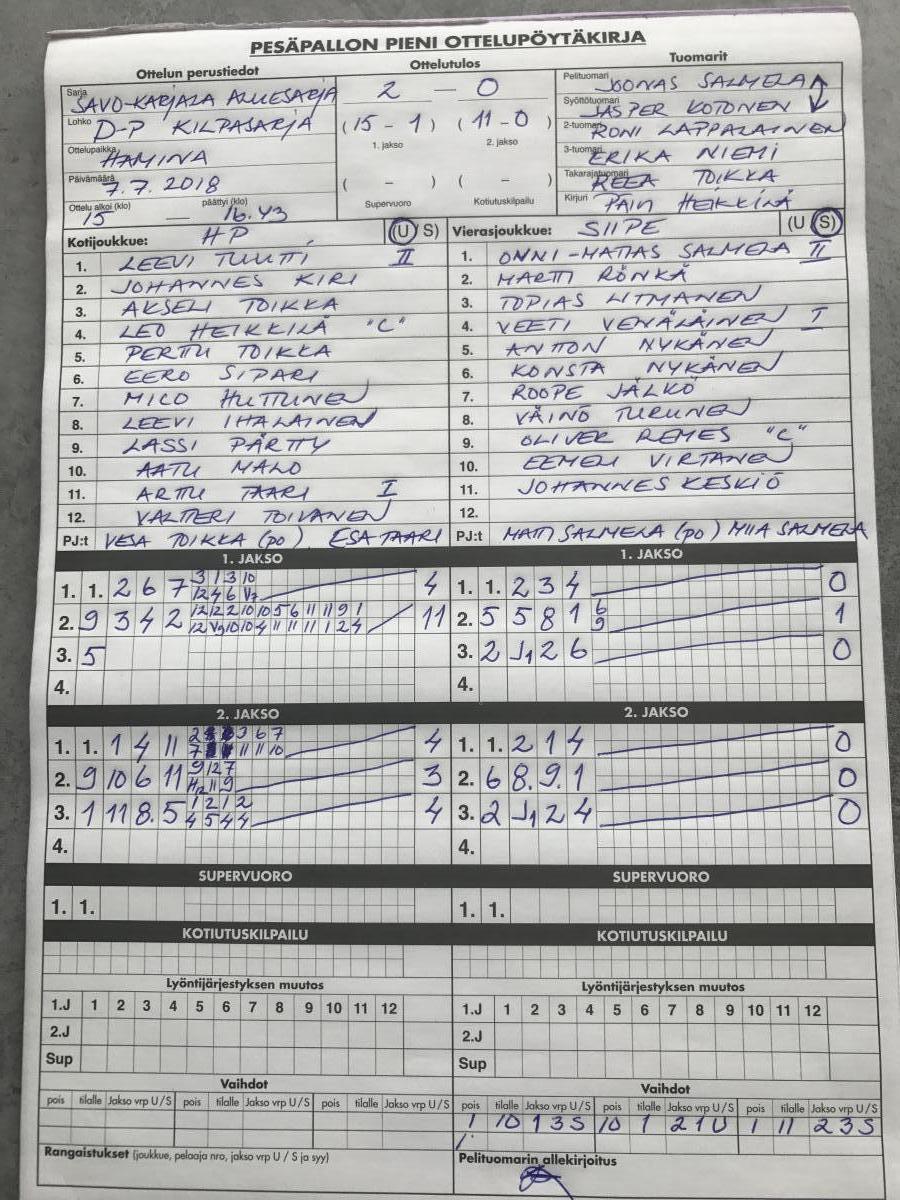 PESÄPALLON PIENI OTTELUPÖYTÄKIRJA
Ottelun perustiedot Ottelutulos Tuomarit
Sarja SAVO-KARJALA ALUESARJA 2 — 0 Pelituomari JOONAS SALMELA
Lohko D-P KILPASARJA (15 - 1) (11 - 0) Syöttötuomari JASPER KOTONEN
1. jakso 2. jakso 2-tuomari RONI LAPPALAINEN
Ottelupaikka HAMINA 3-tuomari ERIKA NIEMI
Päivämäärä 7.7.2018 ( - ) ( - ) Takarajatuomari REEA TOIKKA
Ottelu alkoi (klo) 15 — päättyi (klo) 16.43 Supervuoro Kotiutuskilpailu Kirjuri HEIKKILÄ
Kotijoukkue: HP (U S) Vierasjoukkue: SIIPE (U S)
1. LEEVI TUUTTI II 1. ONNI-MATIAS SALMELA II
2. JOHANNES KIRI 2. MARTTI RÖNKÄ
3. AKSELI TOIKKA 3. TOPIAS LITMANEN
4. LEO HEIKKILÄ "C" 4. VEETI VENÄLÄINEN I
5. PERTTU TOIKKA 5. ANTTON NYKÄNEN
6. EERO SIPARI 6. KONSTA NYKÄNEN
7. MICO HUTTUNEN 7. ROOPE JÄLKÖ
8. LEEVI IHALAINEN 8. VÄINÖ TURUNEN
9. LASSI PÄRTTY 9. OLIVER REMES "C"
10. AATU MALO 10. EEMELI VIRTANEN
11. ARTTU TAARI I 11. JOHANNES KESKIÖ
12. VALTTERI TOIVANEN 12.
PJ:t VESA TOIKKA (po) ESA TAARI PJ:t MATTI SALMELA (po) MIIA SALMELA
1. JAKSO 1. JAKSO
1. 1. 2 6 7 4 1. 1. 2 3 4 0
2. 9 3 4 2 11 2. 5 5 8 1 6 9 1
3. 5 3. 2 J1 2 6 0
4. 4.
2. JAKSO 2. JAKSO
1. 1. 1 4 11 4 1. 1. 2 1 4 0
2. 9 10 6 11 3 2. 6 8. 9. 1 0
3. 1 11 8. 5 1 2 1 2 4 5 4 4 4 3. 2 J1 2 4 0
4. 4.
SUPERVUORO SUPERVUORO
1. 1. 1. 1.
KOTIUTUSKILPAILU KOTIUTUSKILPAILU
Lyöntijärjestyksen muutos Lyöntijärjestyksen muutos
1.J 1 2 3 4 5 6 7 8 9 10 11 12 1.J 1 2 3 4 5 6 7 8 9 10 11 12
2.J 2.J
Sup Sup
Vaihdot Vaihdot
pois tilalle Jakso vrp U/S pois tilalle Jakso vrp U/S pois tilalle Jakso vrp U/S pois tilalle Jakso vrp U/S pois tilalle Jakso vrp U/S pois tilalle Jakso vrp U/S
1 10 1 3 S 10 1 2 1 U 1 11 2 3 S
Rangaistukset (joukkue, pelaaja nro, jakso vrp U / S ja syy) Pelituomarin allekirjoitus